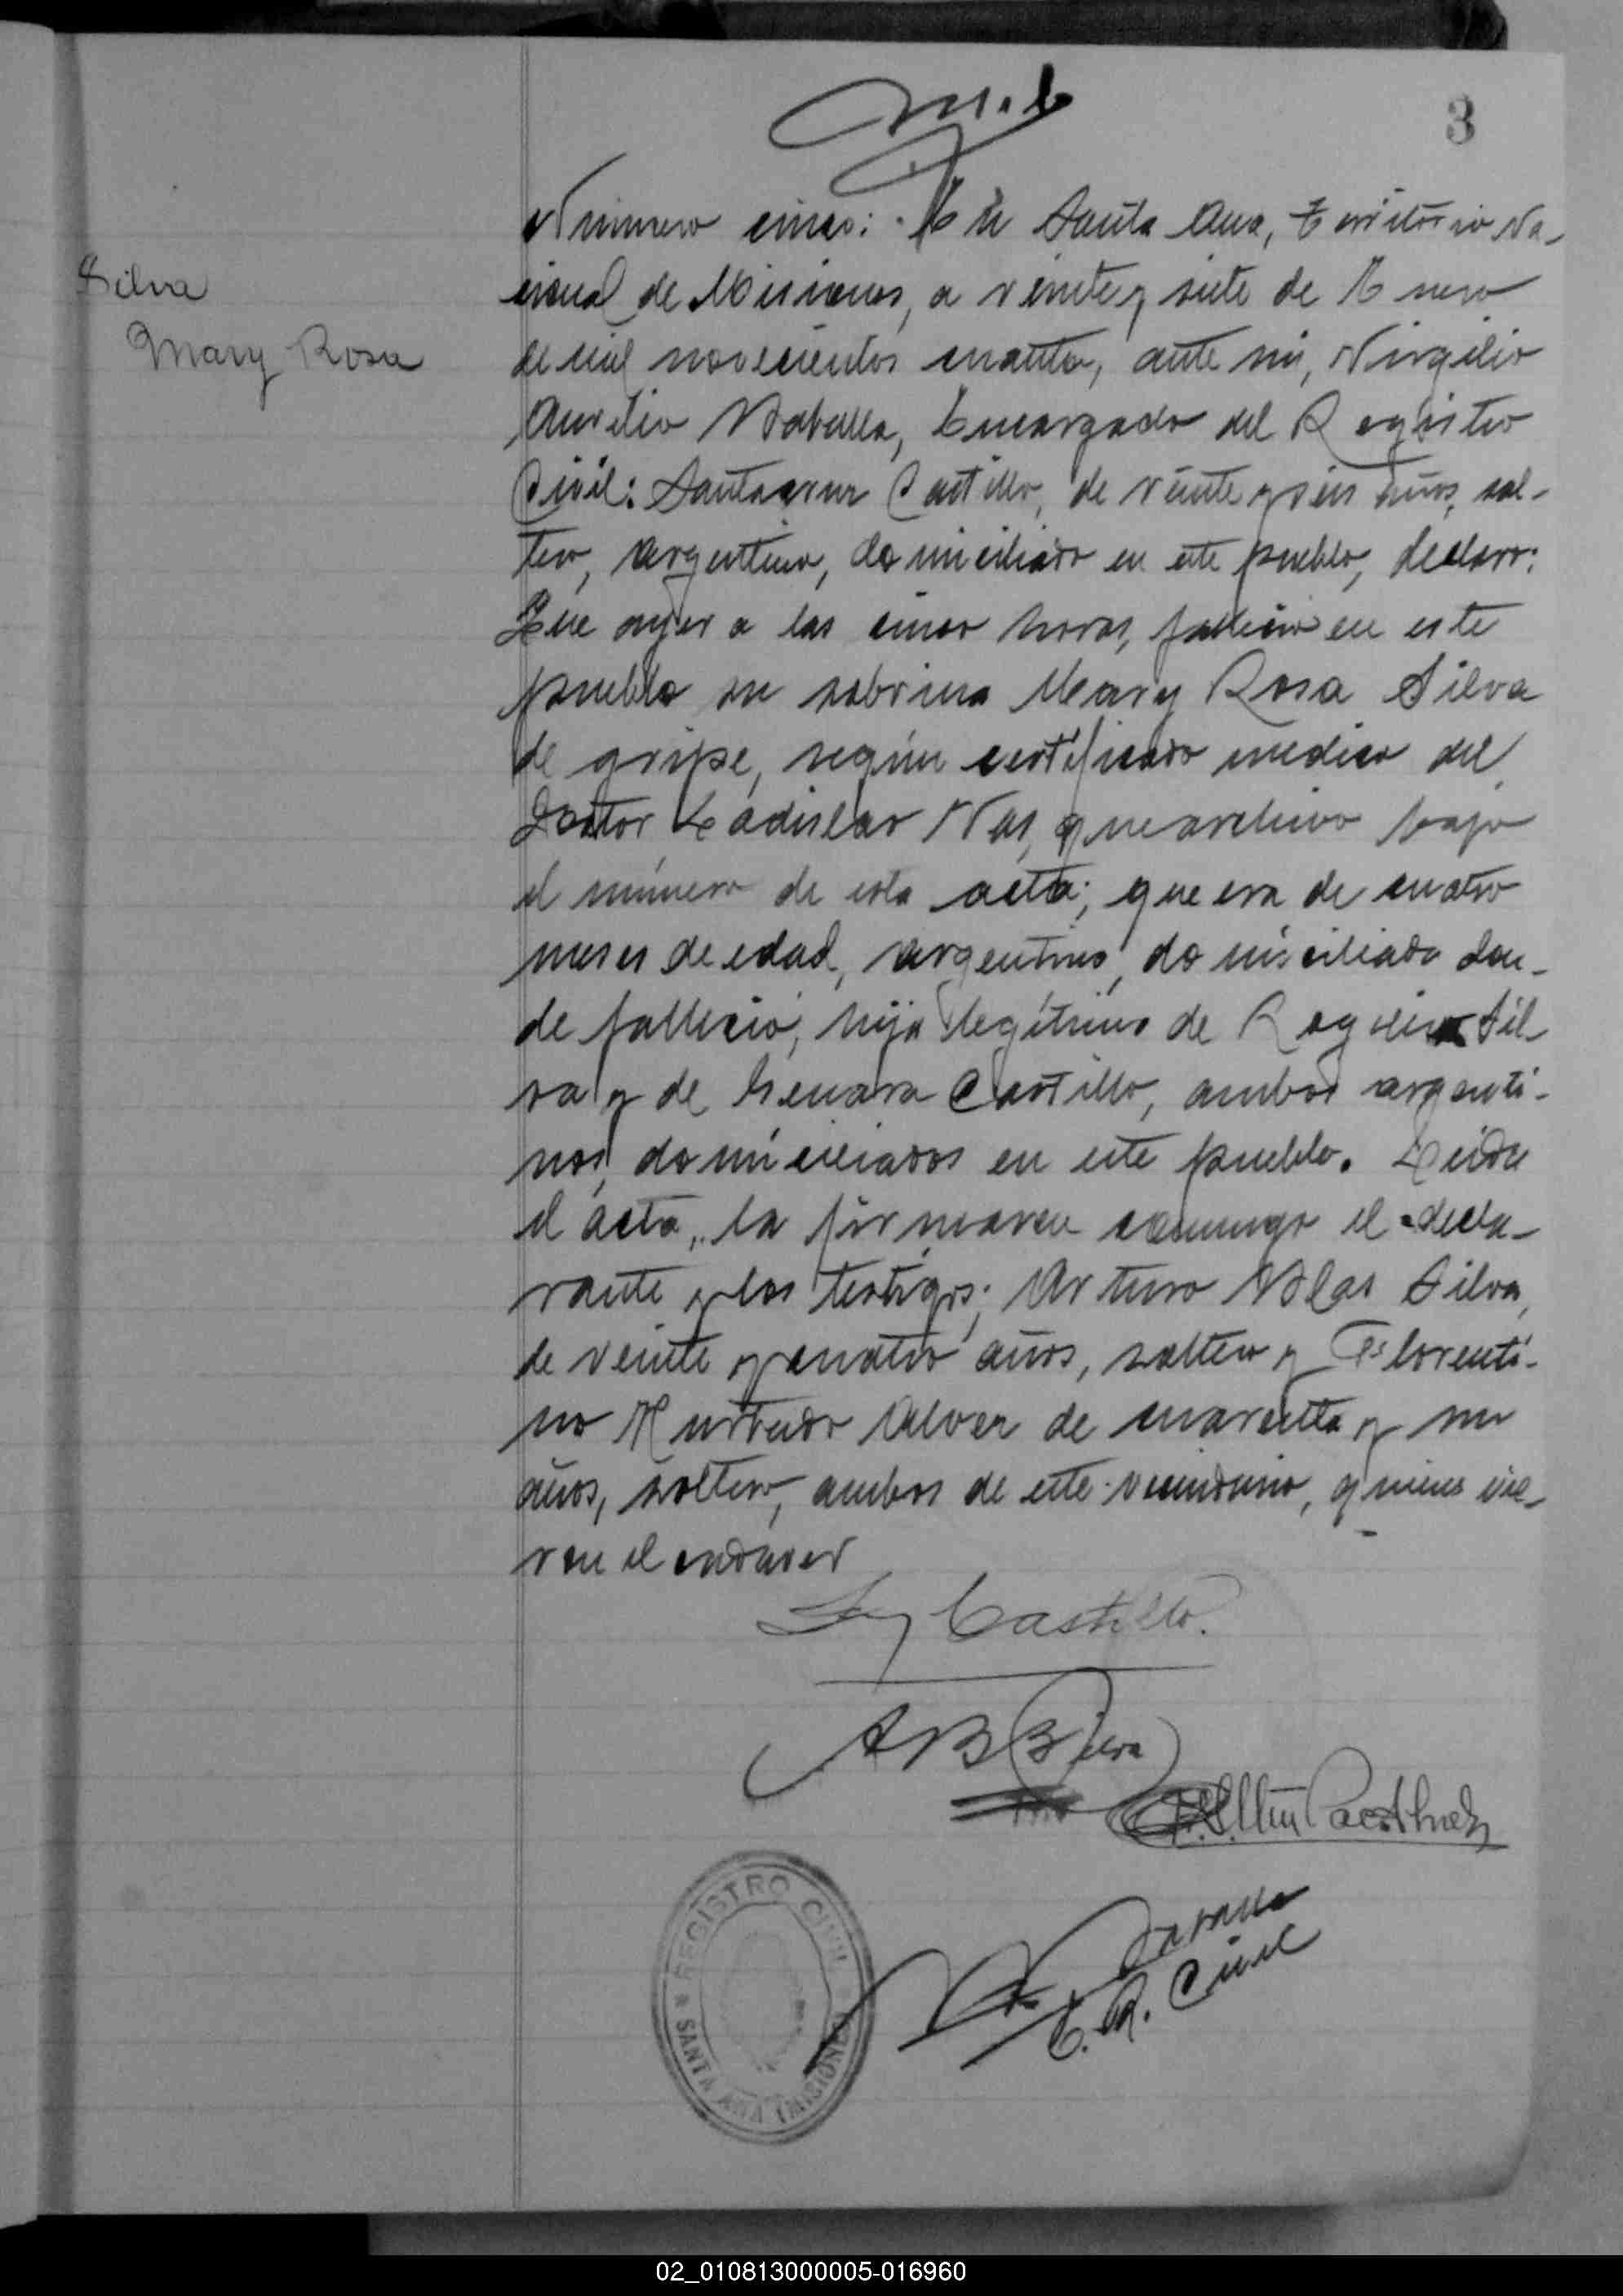 3
Número cinco: En Santa Ana, Territorio Na-
Silva
cional de Misiones, a veinte y siete de Enero
Mary Rosa
de mil novecientos cuarenta, ante mí, Virgilio
Aurelio Zaballa, Encargado del Registro
Civil: Castillo, de veinte y seis años, sol-
tero, argentino, domiciliado en este pueblo, declaro:
Que ayer a las cinco horas, falleció en este
pueblo su sobrina Mary Rosa Silva
de gripe, según certificado medico del
Doctor Ladislao que archivo bajo
el número de esta acta; que era de cuatro
meses de edad, argentina, domiciliada don-
de falleció, hija legítima de Silv-
va y de Genara Castillo, ambos argenti-
nos, domiciliados en este pueblo. Leida
el acta, la firmaron conmigo el decla-
rante y los testigos; Arturo Blas Silva,
de veinte y cuatro años, soltero y Florenti-
no de cuarenta y un
años, soltero, ambos de este vecindario, quienes vie-
ron el cadaver
Castillo.
A B Silva
Zaballa
E. R. Civil
REGISTRO CIVIL
SANTA ANA (MISIONES)
02_010813000005-016960